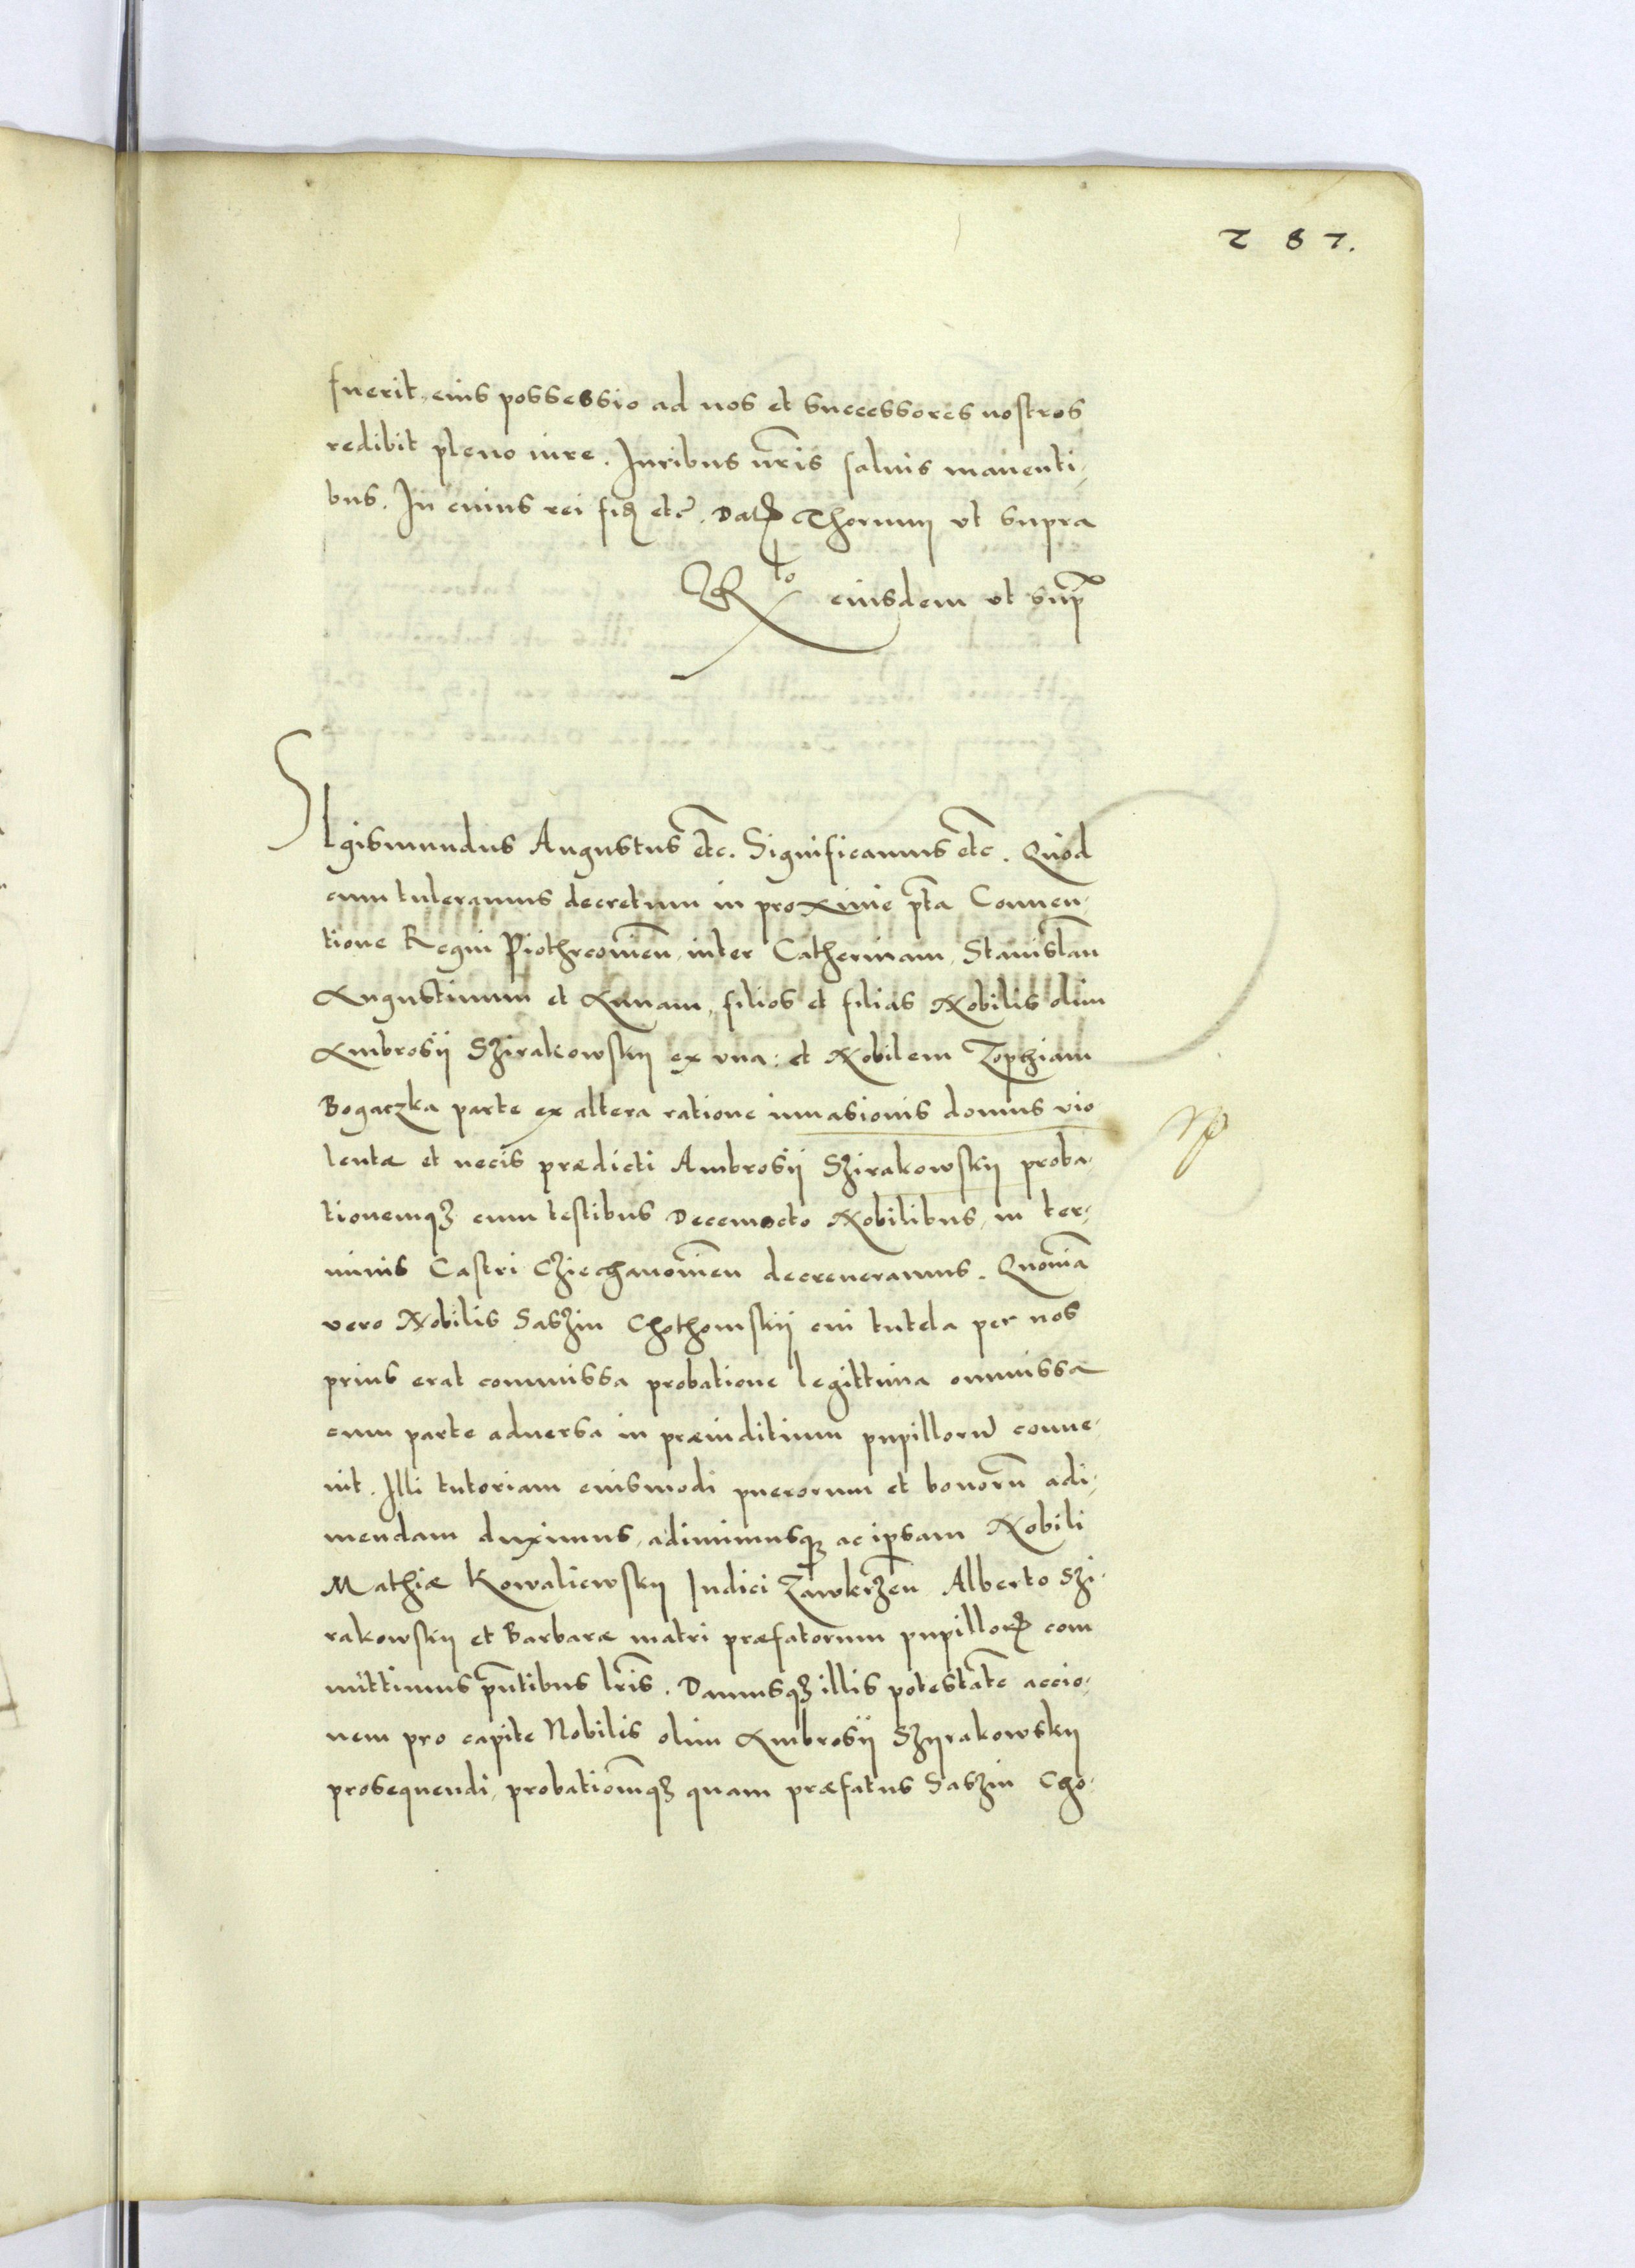 287.
fuerit, eius possessio ad nos et successores nostros
redibit pleno iure. Iuribus nr̃is salvis manenti,
bus. In cuius rei fid etc̃. Dat Thorunij vt supra
Rto eiusdem vt sup̃
SIgismundus Augustus etc̃. Significamus etc̃. Quod
cum tuleramus decretum in proxime p̃ta Conuen,
tione Regni Piothrcouien̄, inter Catherinam, Stanislau̅
Augustinum et Annam, filios et filias Nobilis olim
Ambrosij Szirakowskij ex vna: et Nobilem Zophiam
Bogaczka parte ex altera ratione inuasionis domus vio
lentæ et necis prædicti Ambrosij Szirakowskij proba,
tionemqʒ cum testibus Decemocto Nobilibus, in ter,
minis Castri Cziechanouien̄ decreueramus. Quonia̅
vero Nobilis Saszin Chothomskij cui tutela per nos
prius erat commissa probatione legittima ommissa
cum parte aduersa in præiuditium pupilloru̅ conue,
nit. Illi tutoriam eiusmodi puerorum et bonoru̅ adi,
mendam duximus, adimimusqʒ ac ipsam Nobili
Mathiæ Kowaliewskij Iudici Zawkrzen̄ Alberto Szi,
rakowskij et Barbaræ matri præfatorum pupillorꝝ com
mittimus pn̅tibus lr̃is. Damusqʒ illis potestate̅ accio,
nem pro capite Nobilis olim Ambrosij Szyrakowskij
prosequendi, probatione̅qʒ quam præfatus Saszin Cho,